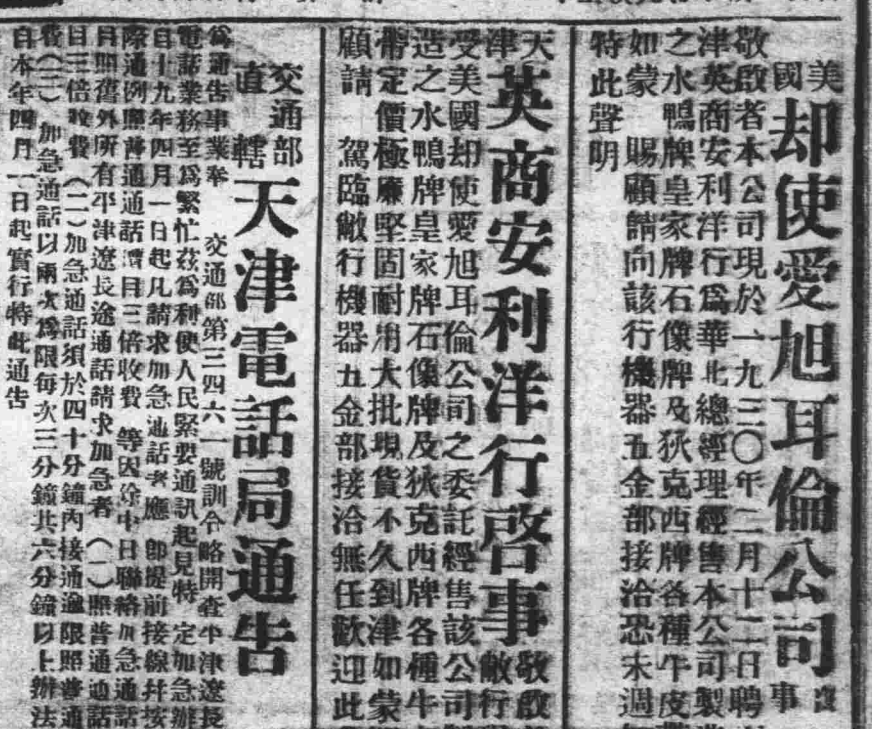 美國却使愛旭耳倫公司事
敬啟者本公司現於一九三〇年二月十二日聘
津英商安利洋行爲華北總經理經售本公司製造
之水鴨牌皇家牌石像牌及狄克西牌各種牛皮
如蒙 賜顧請向該行機器五金部接洽恐未週
特此聲明
天津英商安利洋行啓事 敬啟
敝行
受美國却使愛旭耳倫公司之委託經售該公司
造之水鴨牌皇家牌石像牌及狄克西牌各種牛
帶定價極廉堅固耐用大批現貨不久到津如蒙
顧請 駕臨敝行機器五金部接洽無任歡迎此
交通部直轄天津電話局通告
爲通告事業奉 交通部第三四六一號訓令略開查平津遼長
電話業務至爲繁忙茲爲利便人民緊要通訊起見特定加急辦
自十九年四月一日起凡請求加急通話者應即提前接線幷按
際通例照普通通話價目三倍收費等因除中日聯絡加急通話
目照舊外所有平津遼長途通話請求加急者（一）照普通通話
目三倍收費（二）加急通話須於四十分鐘內接通逾限照普通
費（三）加急通話以兩次爲限每次三分鐘共六分鐘以上辦法
自本年四月一日起實行特此通告